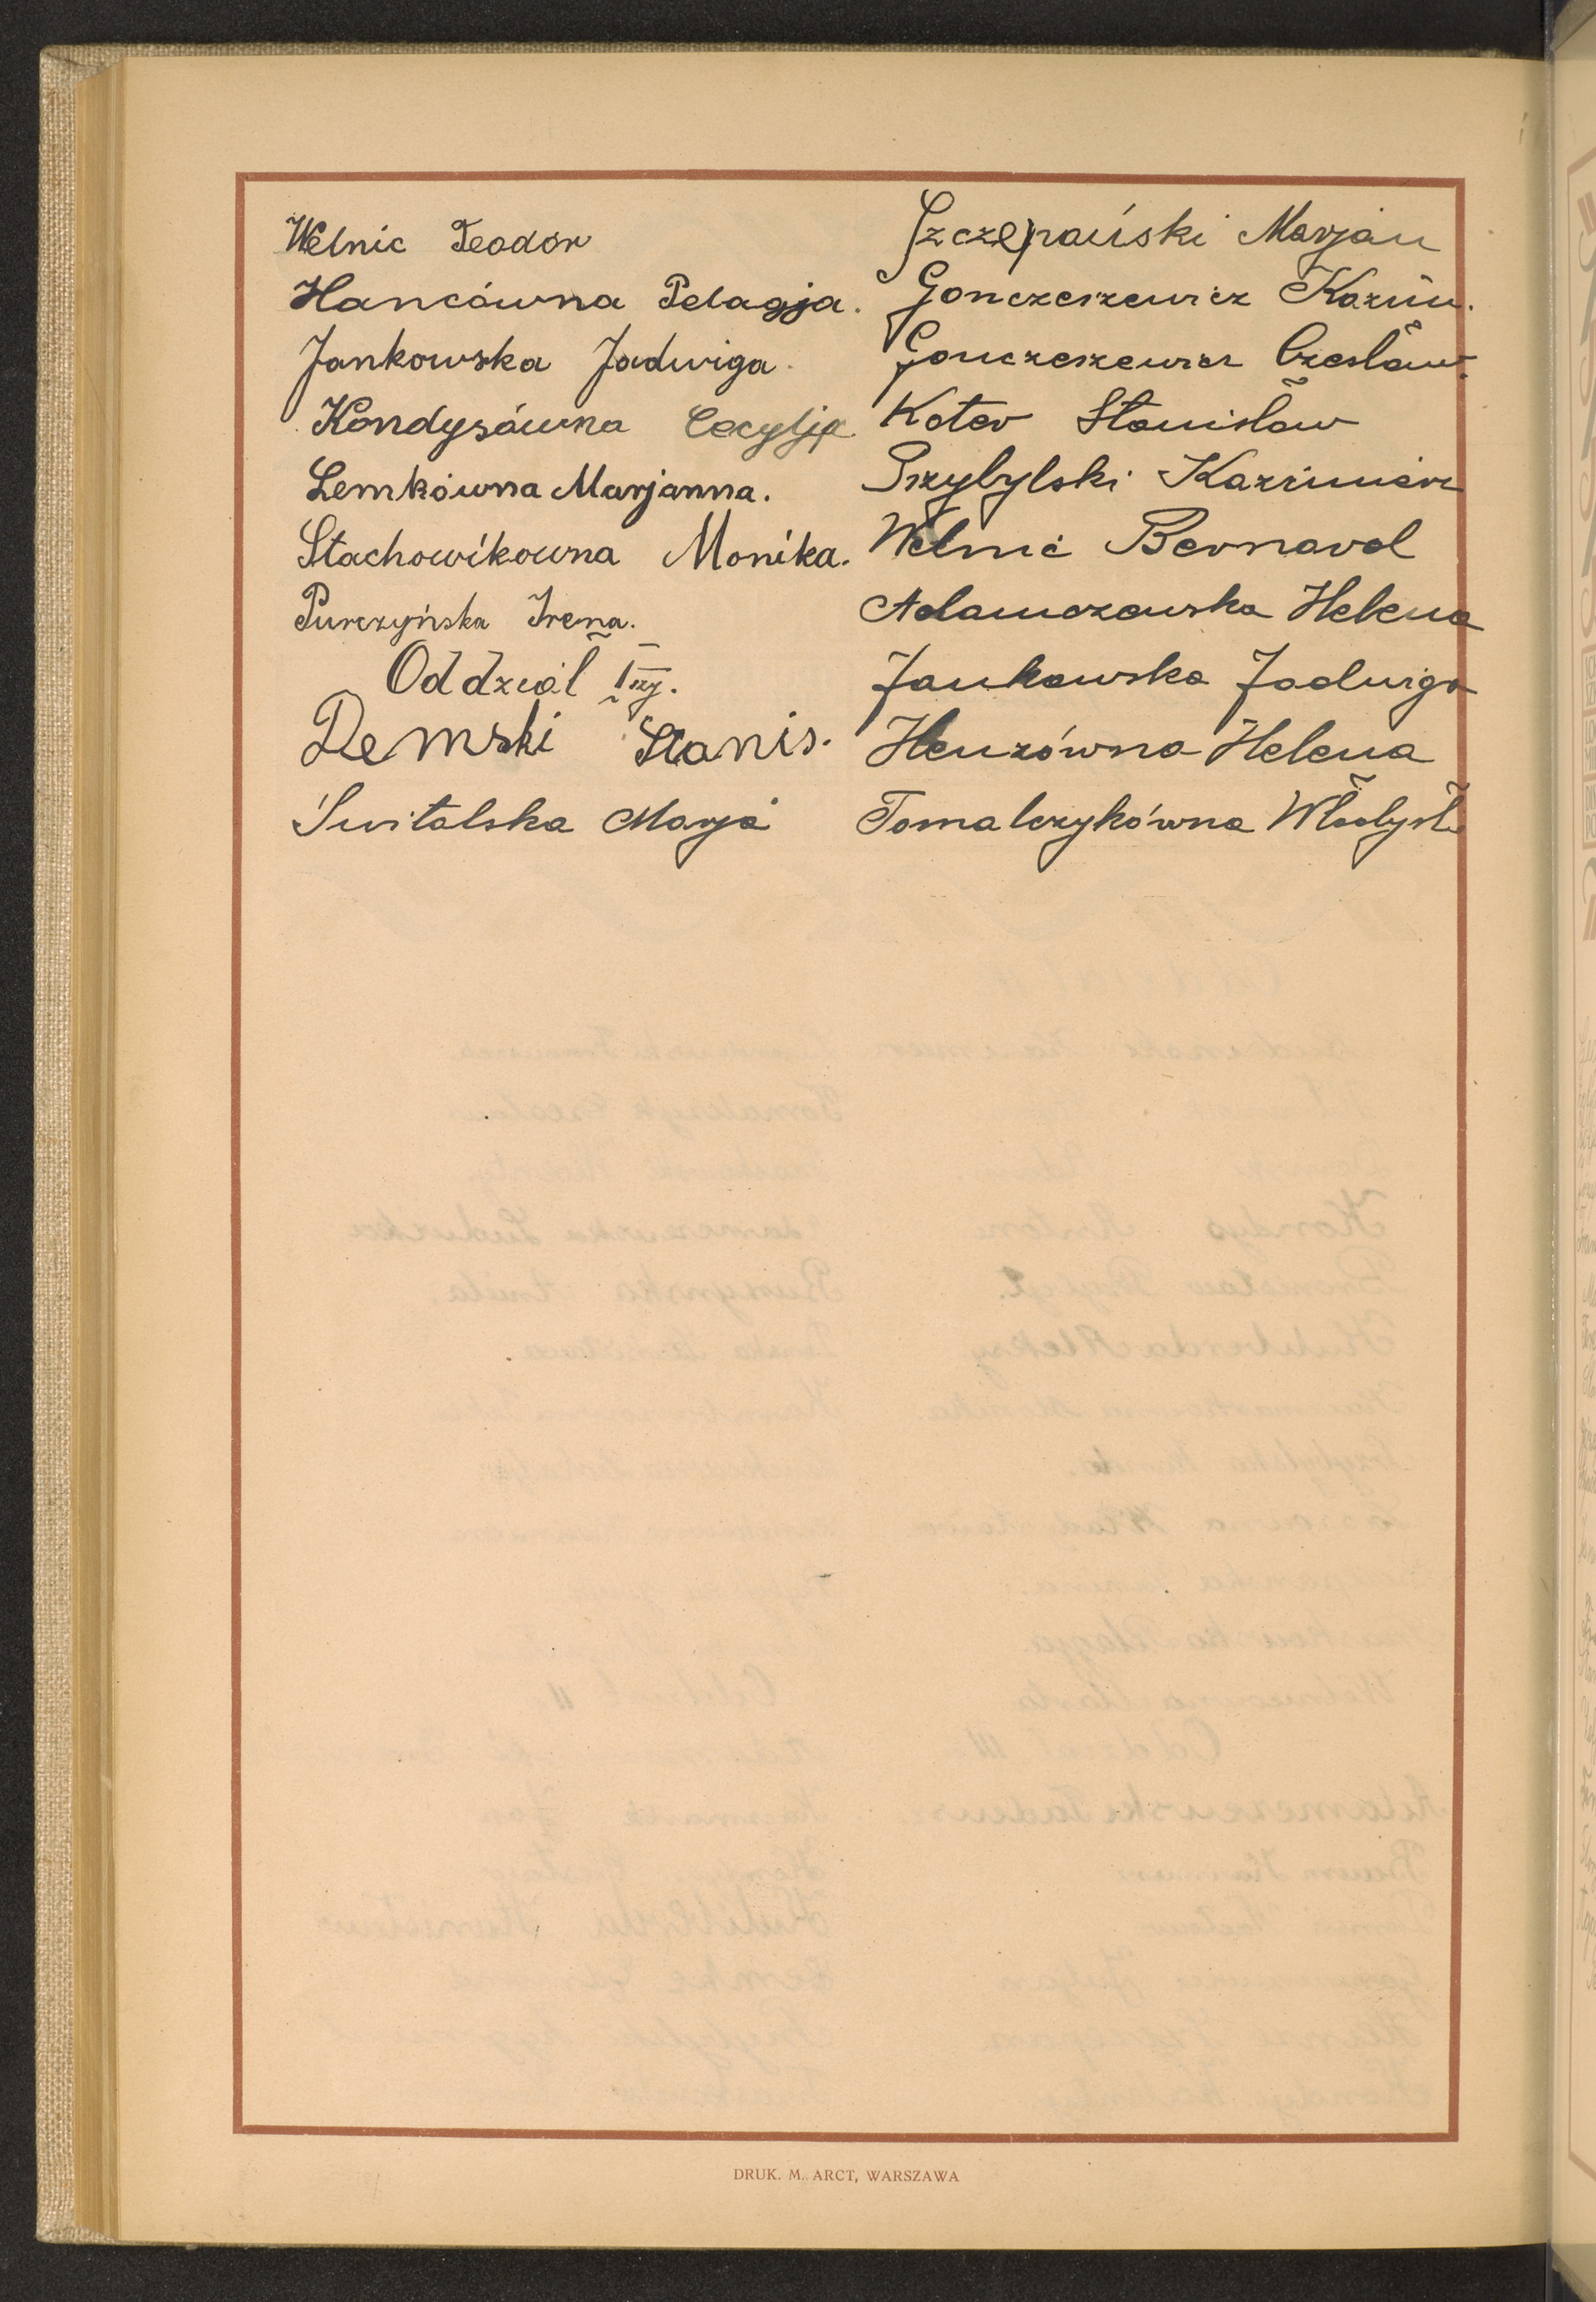 Welnic Teodor
Hancówna Pelagja.
Jankowska Jadwiga.
Kondysówna Cecylja.
Lemkówna Marjanna.
Stachowikowna Monika.
Purczyńska Irena.
Oddział Iszy.
Demski Stanis.
Switalska Marja
Szczepański Marjan
Gonczerzewicz Kazim.
Gonczerzewicz Czesław.
Koter Stanisław
Przybylski Kazimierz
Welnic Bernard
Adamczewska Helena
Jankowska Jadwiga
Henzówna Helena
Tomalczykówna Władysł.
DRUK. M. ARCT, WARSZAWA